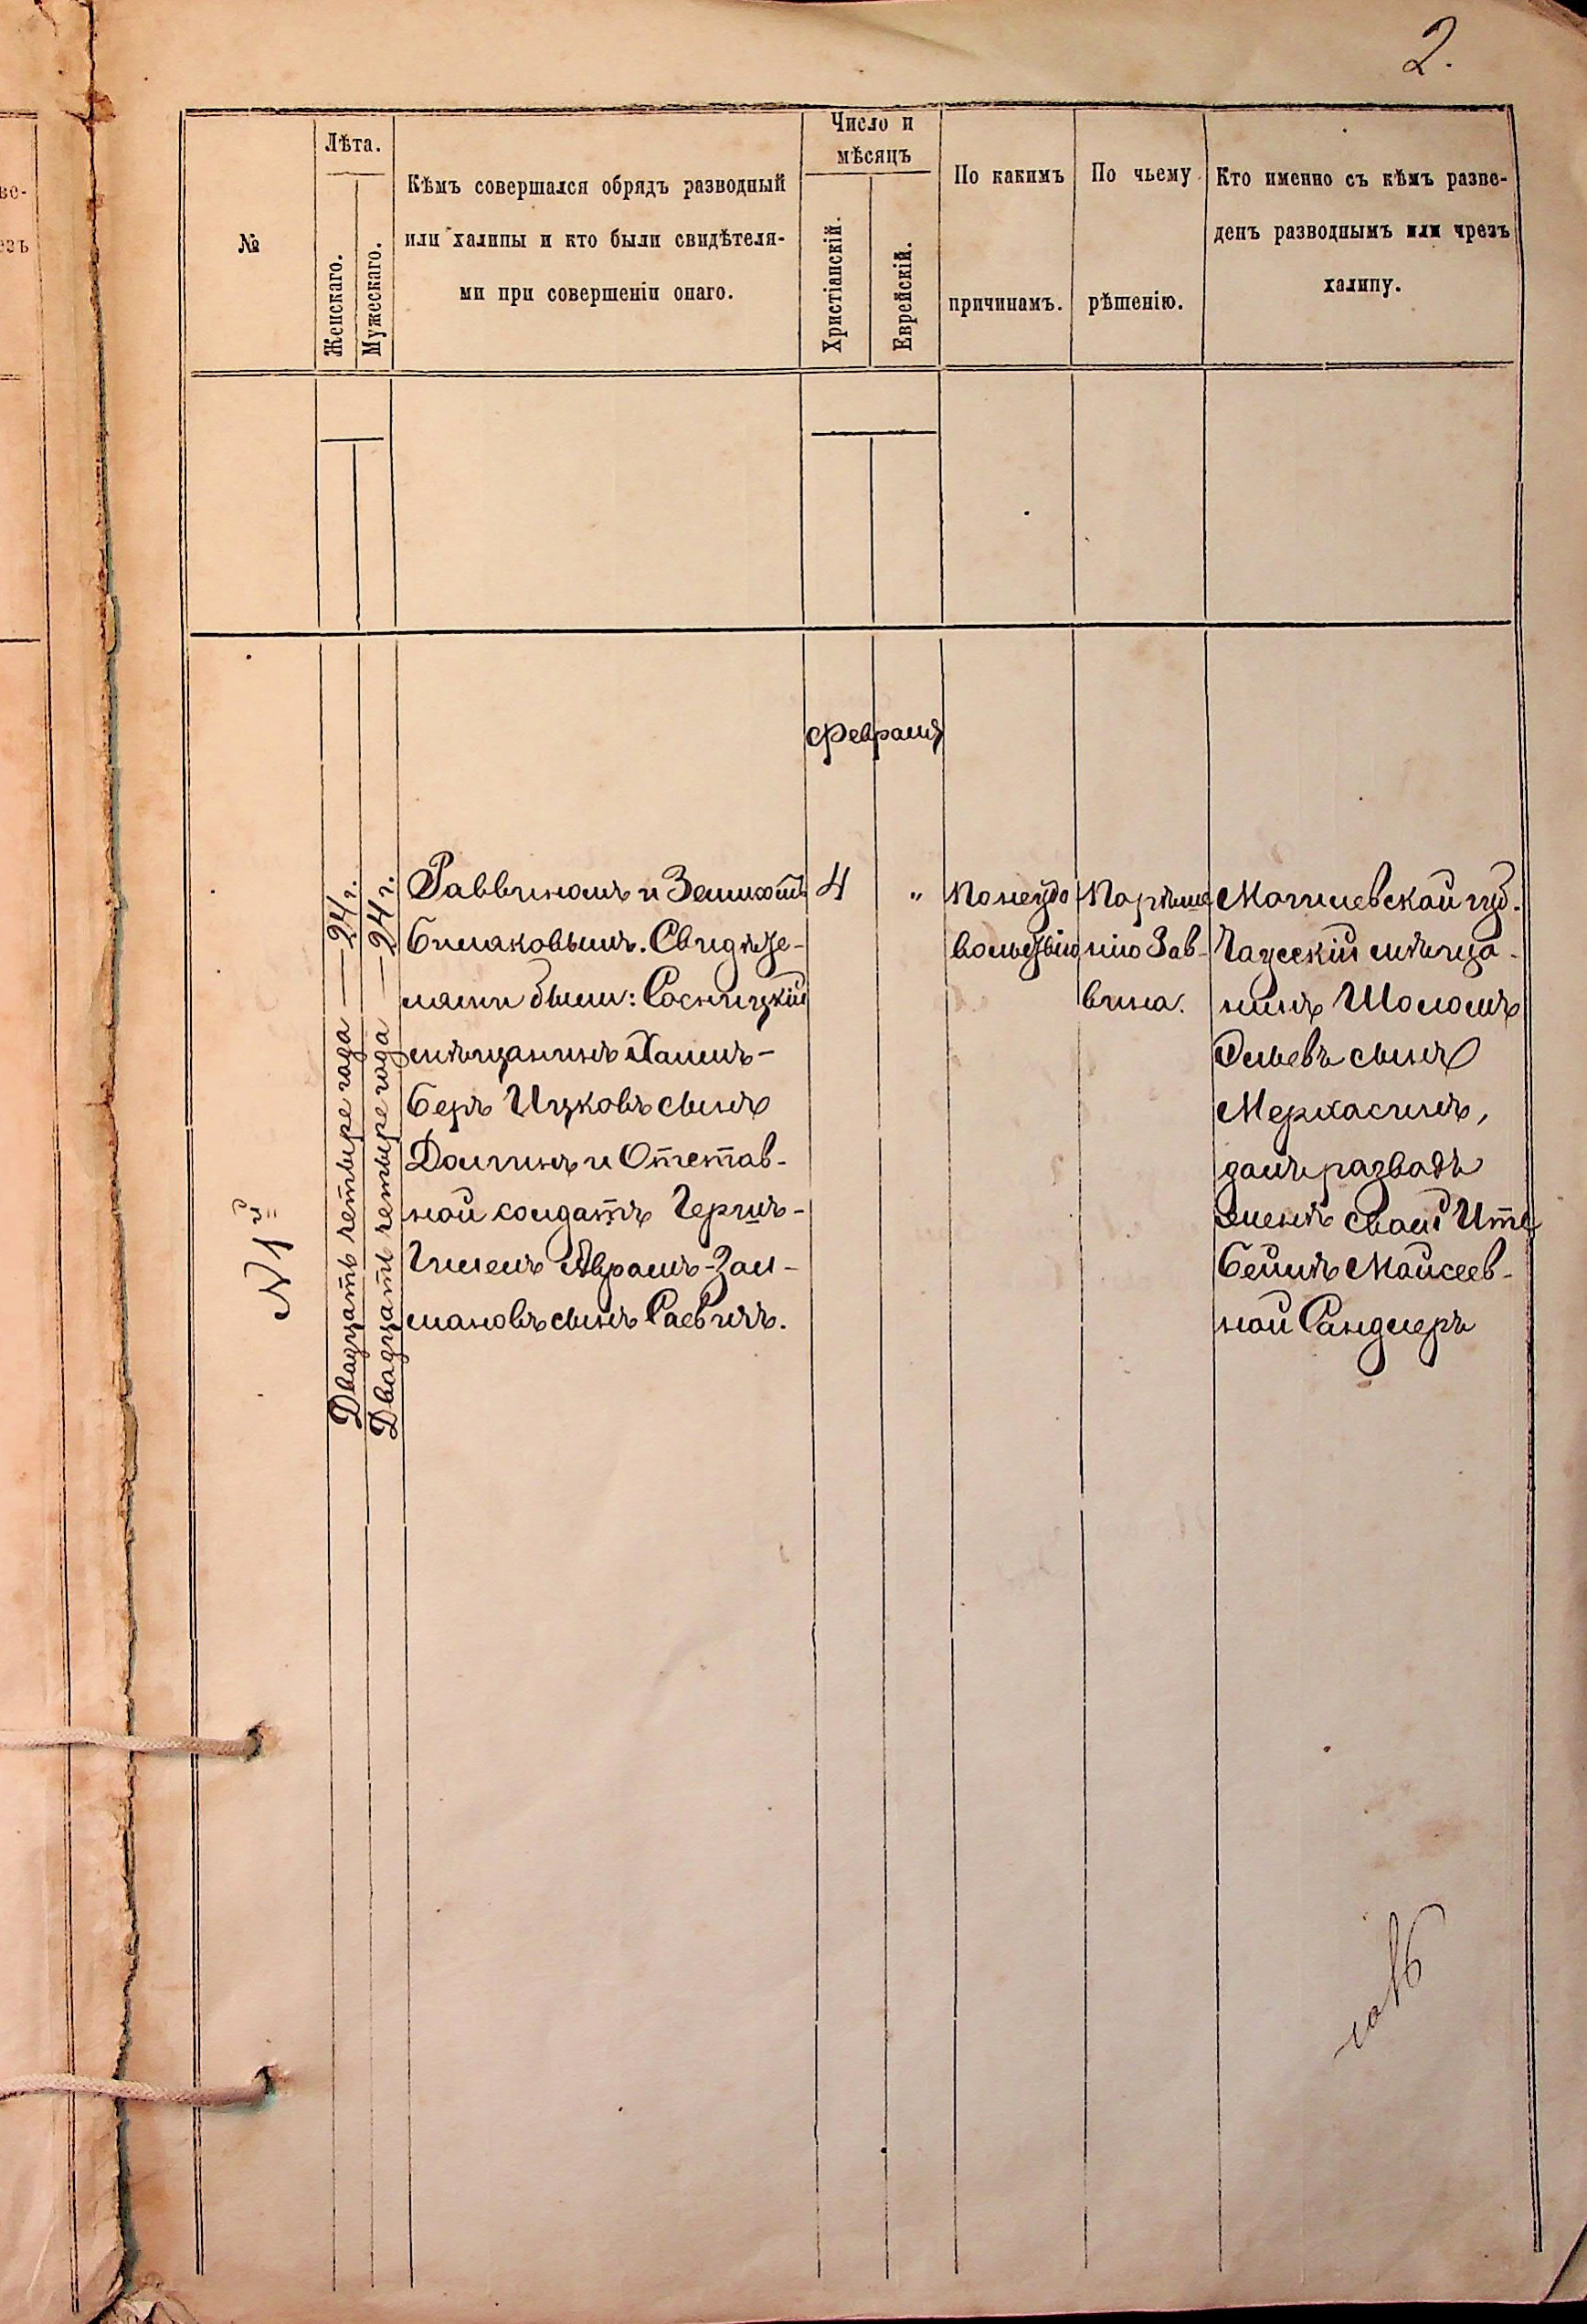 2.
№
Лѣта.
Женскаго.
Мужескаго.
Кѣмъ совершался обрядъ разводный
или халицы и кто были свидѣтеля-
ми при совершеніи онаго.
Число и
мѣсяцъ
Христіанскій.
Еврейскій.
По какимъ
причинамъ.
По чьему
рѣшенію.
Кто именно съ кѣмъ разве-
денъ разводнымъ или чрезъ
халицу.
Февраля
№ 1й
Двадцать четыре года — 24 г.
Двадцать четыре года — 24 г.
Раввиномъ и
Бинаковымъ. Свидѣте-
лями были: Сосницкій
мѣщанинъ Хаимъ-
Беръ Ицковъ сынъ
Долгинъ и Отстав-
ной солдатъ Гершъ-
Гилелъ Абрамъ-Зал-
мановъ сынъ Раевичъ.
4
"
По неудо
вольствію
По рѣше
нію Рав-
вина.
Могилевской губ.
мѣща-
нинъ Шоломъ
сынъ
Мерхасинъ,
далъ разводъ
женѣ своей Ите
Бейлѣ Мойсеев-
ной Сандлеръ